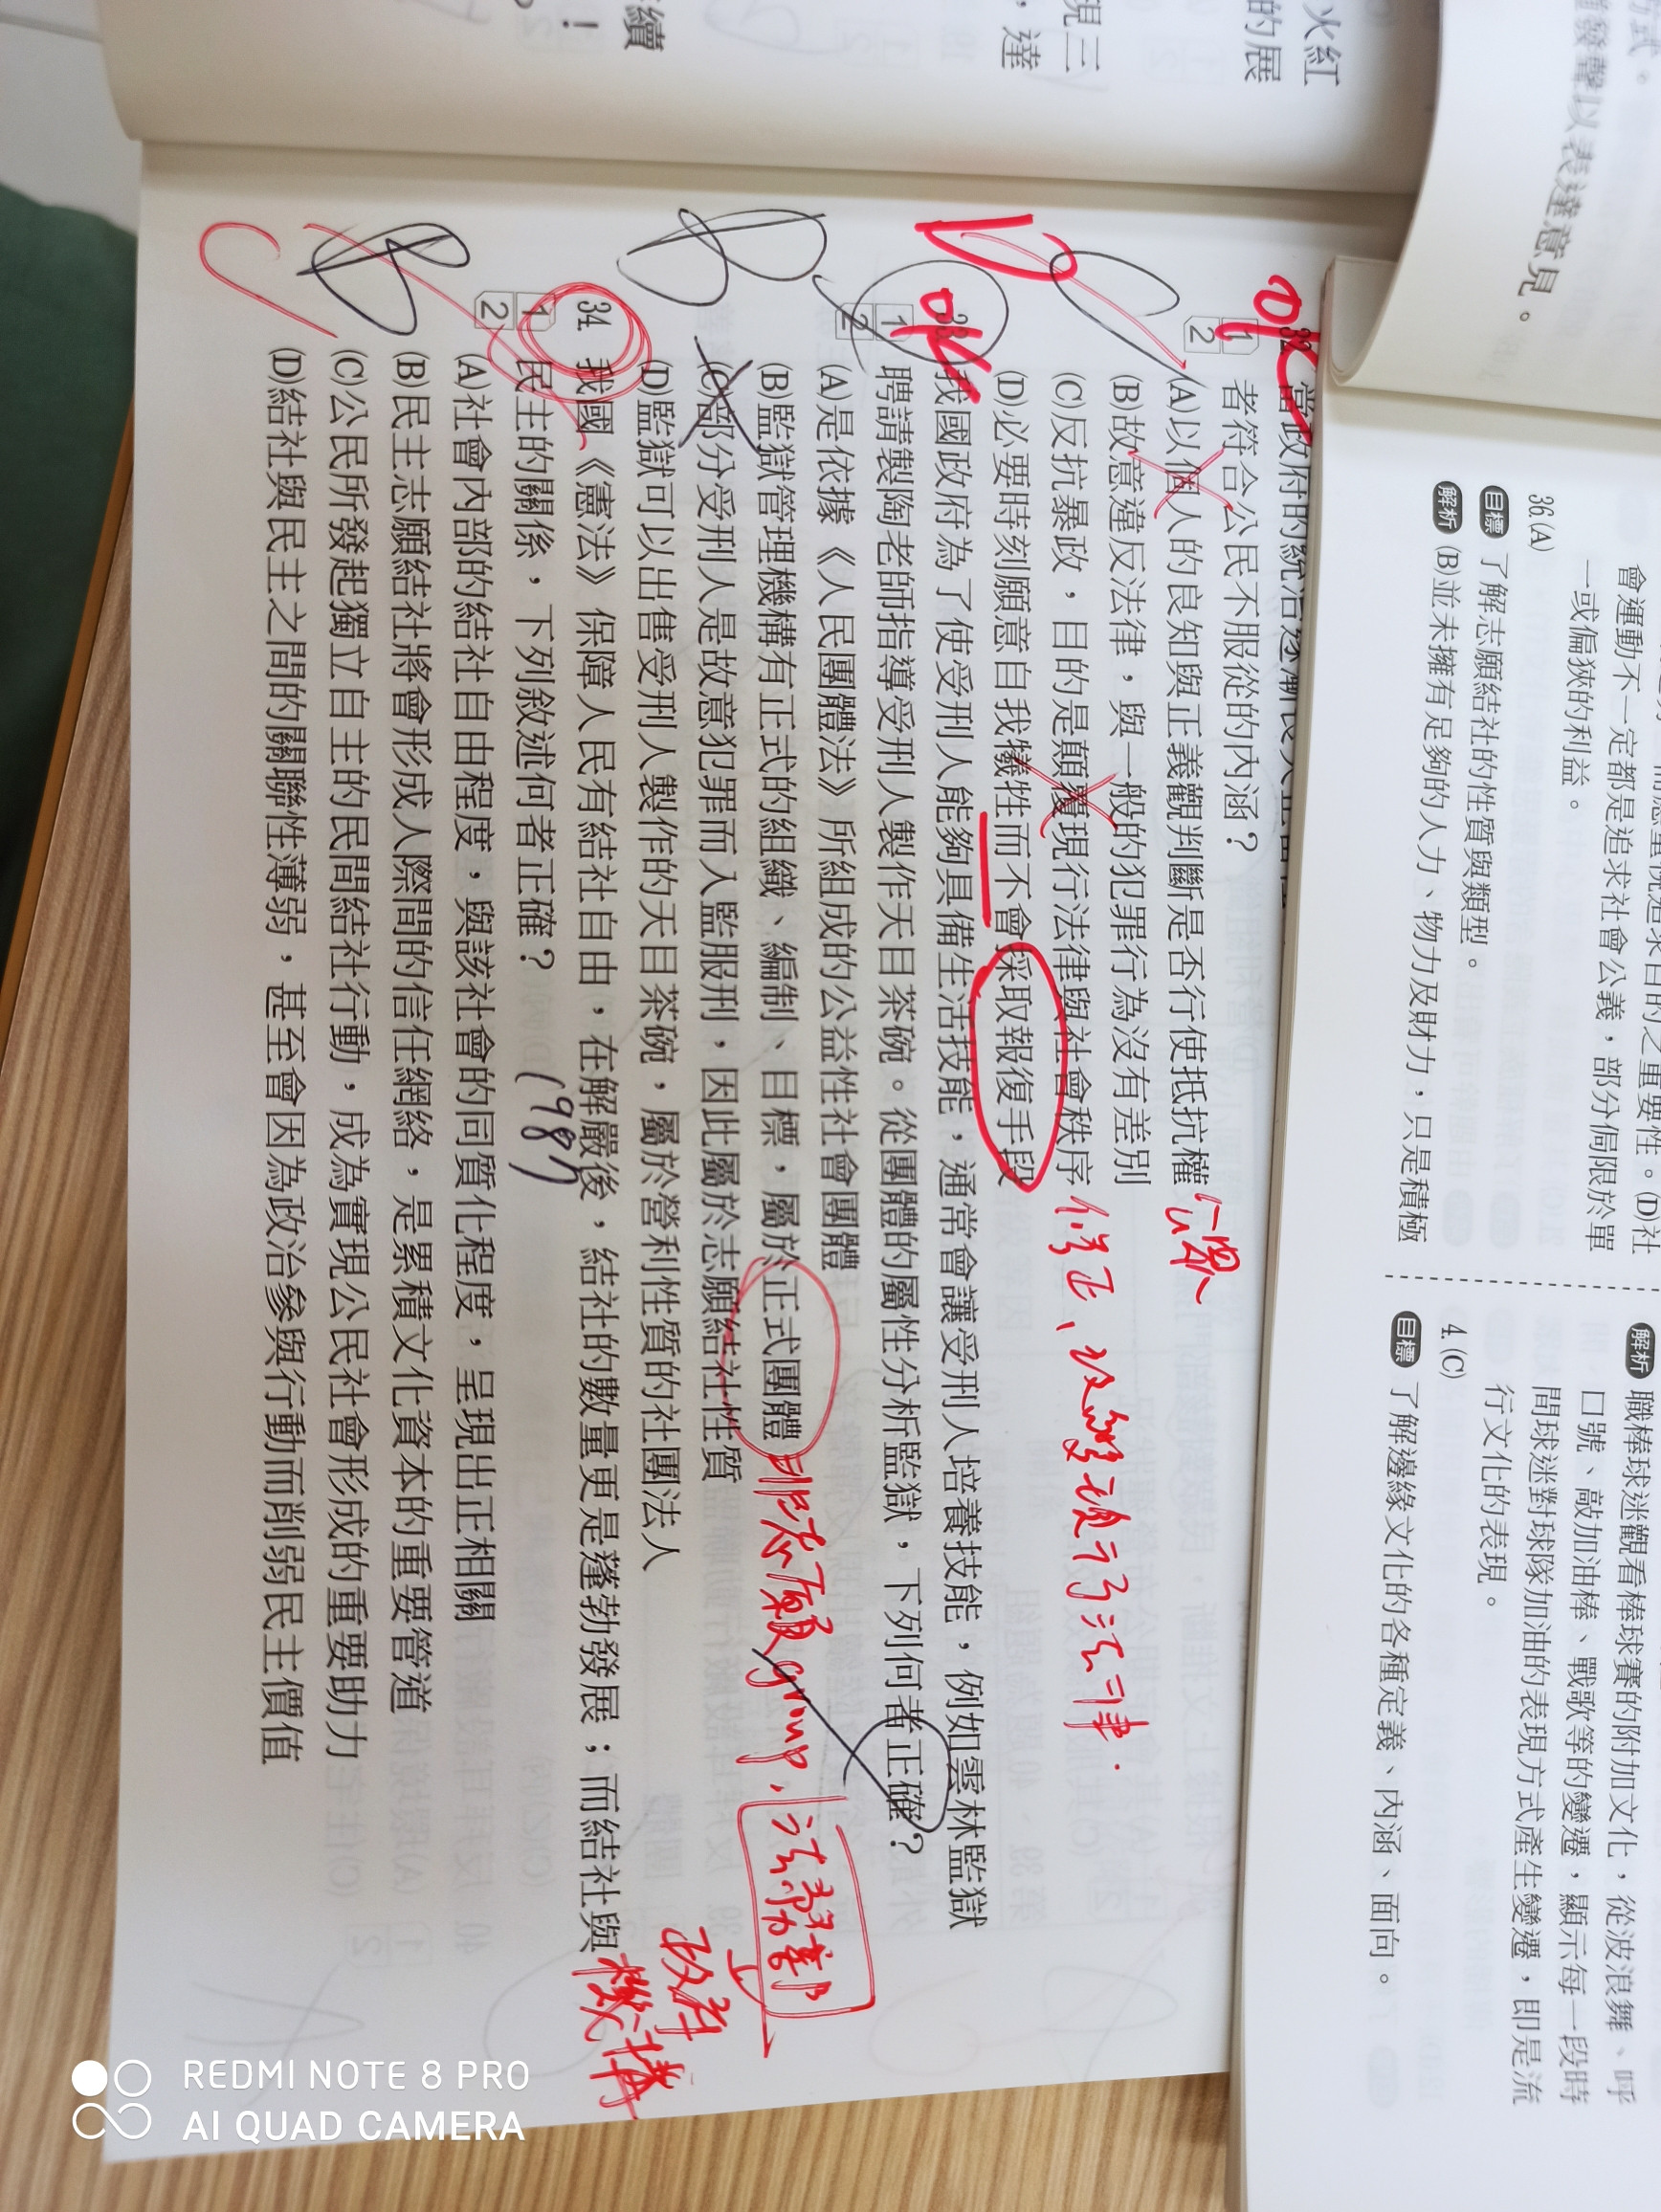 火紅
的展
現三
，達
續
！
方式。
種發聲以表達意見。
會運動不一定都是追求社會公義，部分侷限於單
一或偏狹的利益。
36.(A)
目標 了解志願結社的性質與類型。
解析 (B)並未擁有足夠的人力、物力及財力，只是積極
解析 職棒球迷觀看棒球賽的附加文化，從波浪舞、呼
口號、敲加油棒、戰歌等的變遷，顯示每一段時
間球迷對球隊加油的表現方式產生變遷，即是流
行文化的表現。
4.(C)
目標 了解邊緣文化的各種定義、內涵、面向。
ok
D C
1
2
者符合公民不服從的內涵？
(A)以個人的良知與正義觀判斷是否行使抵抗權 公眾
(B)故意違反法律，與一般的犯罪行為沒有差別
(C)反抗暴政，目的是顛覆現行法律與社會秩序 修正、改變現行法律.
(D)必要時刻願意自我犧牲而不會採取報復手段
ok
B
1
2
我國政府為了使受刑人能夠具備生活技能，通常會讓受刑人培養技能，例如雲林監獄
聘請製陶老師指導受刑人製作天目茶碗。從團體的屬性分析監獄，下列何者正確？
(A)是依據《人民團體法》所組成的公益性社會團體
(B)監獄管理機構有正式的組織、編制、目標，屬於正式團體 非志願group.
(C)部分受刑人是故意犯罪而入監服刑，因此屬於志願結社性質
(D)監獄可以出售受刑人製作的天目茶碗，屬於營利性質的社團法人
政府
機構
B
C
34. 我國《憲法》保障人民有結社自由，在解嚴後，結社的數量更是蓬勃發展；而結社與
1
2
民主的關係，下列敘述何者正確？ (1987
(A)社會內部的結社自由程度，與該社會的同質化程度，呈現出正相關
(B)民主志願結社將會形成人際間的信任網絡，是累積文化資本的重要管道
(C)公民所發起獨立自主的民間結社行動，成為實現公民社會形成的重要助力
(D)結社與民主之間的關聯性薄弱，甚至會因為政治參與行動而削弱民主價值
REDMI NOTE 8 PRO
AI QUAD CAMERA